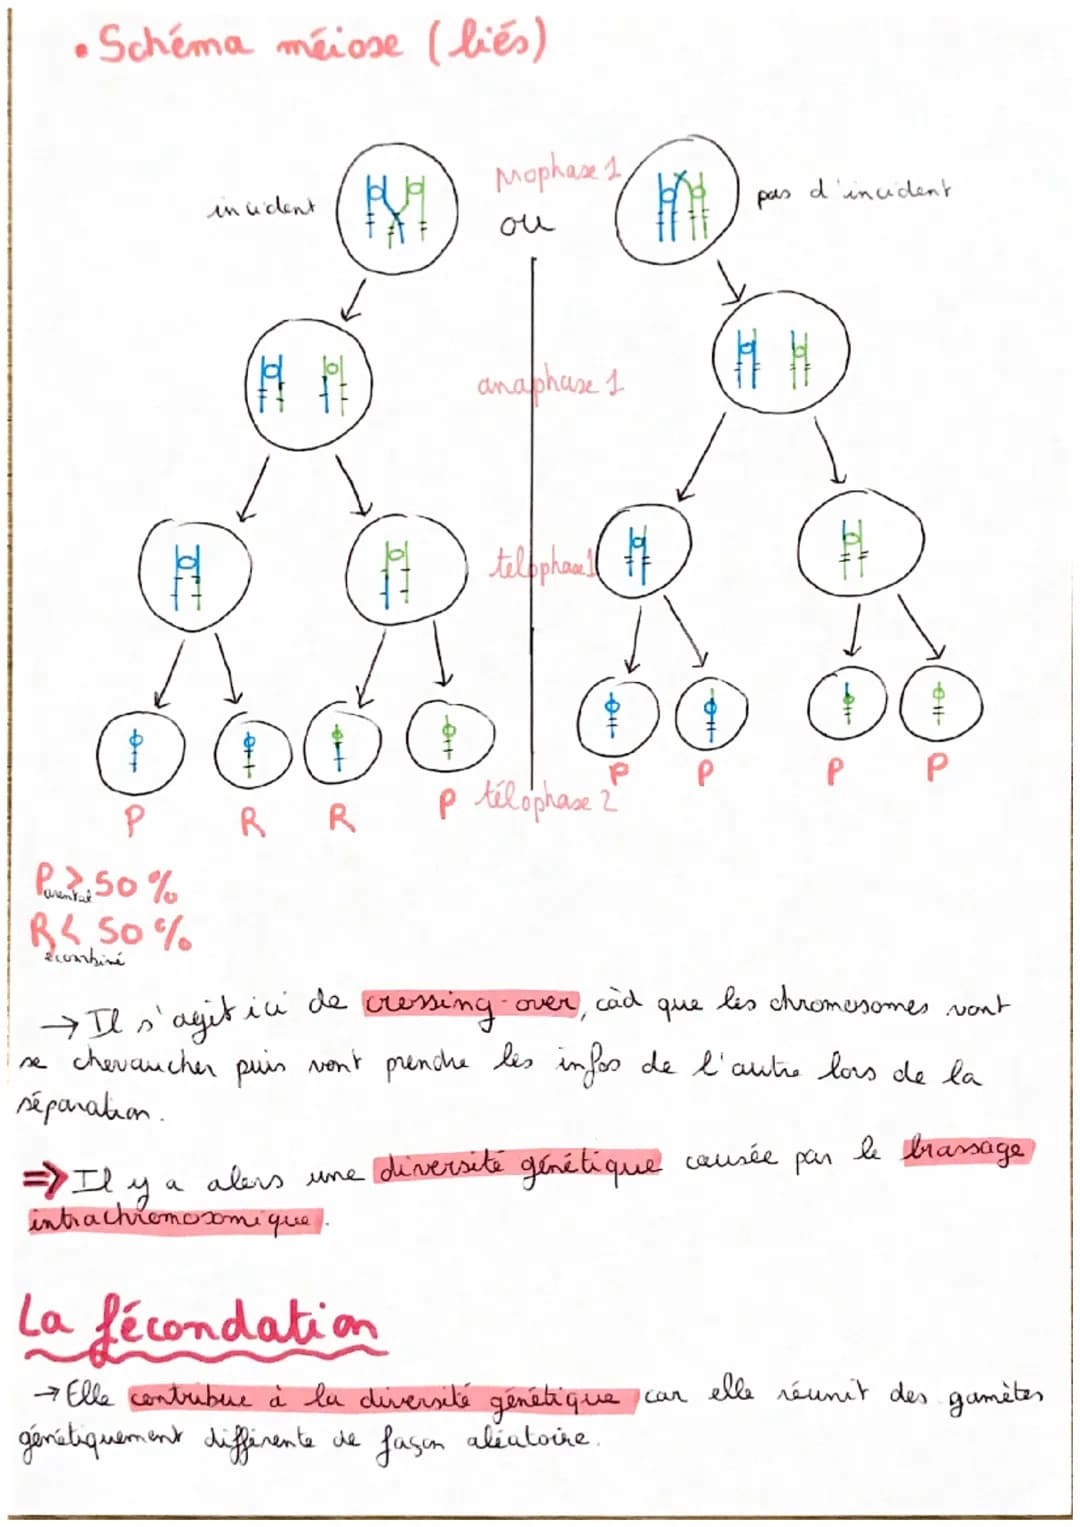 • Schéma méiose (liés)
incident
Prophase 1
ou
pas d'incident
anaphase 1
telophase 1
P
R
R
P
télophase 2
P
P
P
P
Parental > 50 %
Recombiné < 50 %
→ Il s'agit ici de crossing-over, càd que les chromosomes vont
se chevaucher puis vont prendre les infos de l'autre lors de la
séparation.
⇒ Il y a alors une diversité génétique causée par le brassage
intrachromosomique.
La fécondation
→ Elle contribue à la diversité génétique car elle réunit des gamètes
génétiquement différente de façon aléatoire.